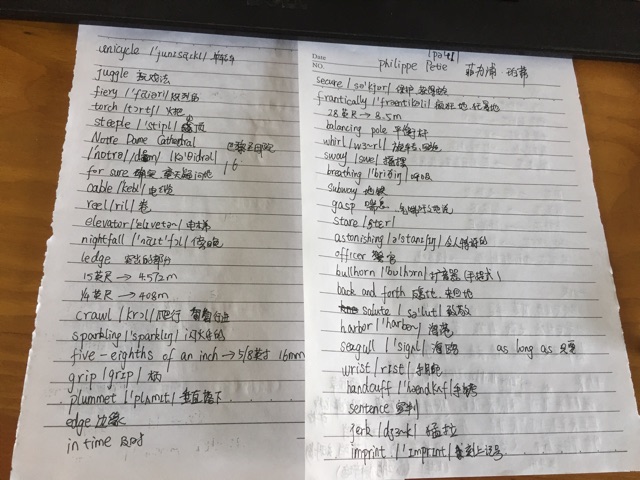 unicycle /'junɪsaɪkl/ 单轮车
juggle 玩戏法
fiery /'faɪəri/ 火烈的
torch /tɔrtʃ/ 火把
steeple /'stipl/ 尖顶
Notre Dame Cathedral 巴黎圣母院
/'notrə/ /dɑm/ /kə'θidrəl/
for sure 确定 毫无疑问地
cable /kebl/ 电缆
reel /ril/ 卷
elevator /'ɛləvetɚ/ 电梯
nightfall /'naɪt'fɔl/ 傍晚
ledge 突出的部分
15英尺 → 4.572m
1/4英尺 → 408m
crawl /krɔl/ 爬行 匍匐行进
sparkling /'sparklɪŋ/ 闪光的
five-eighths of an inch → 5/8英寸 16mm
grip /grɪp/ 柄
plummet /'plʌmɪt/ 垂直落下
edge 边缘
in time 及时
Date
NO.
philippe Petie 菲力浦
secure /sə'kjʊr/ 保护
frantically /'fræntikəli/ 疯狂地
28英尺 → 8.5m
balancing pole 平衡杆
whirl /wɜrl/
sway /swe/ 摇摆
breathing /'briðɪŋ/ 呼吸
subway 地铁
gasp 喘息
stare /stɛr/
astonishing /ə'stɑnɪʃɪŋ/ 令人惊讶的
officer 警官
bullhorn /'bʊlhɔrn/ 扩音器（手提式）
back and forth 来回地
salute /sə'lut/ 致敬
harbor /'harbɚ/ 海港
seagull /'siɡʌl/ 海鸥 as long as 只要
wrist /rɪst/ 手腕
handcuff /'hændkʌf/ 手铐
sentence 宣判
jerk /dʒɝk/ 猛拉
imprint /'ɪmprɪnt/